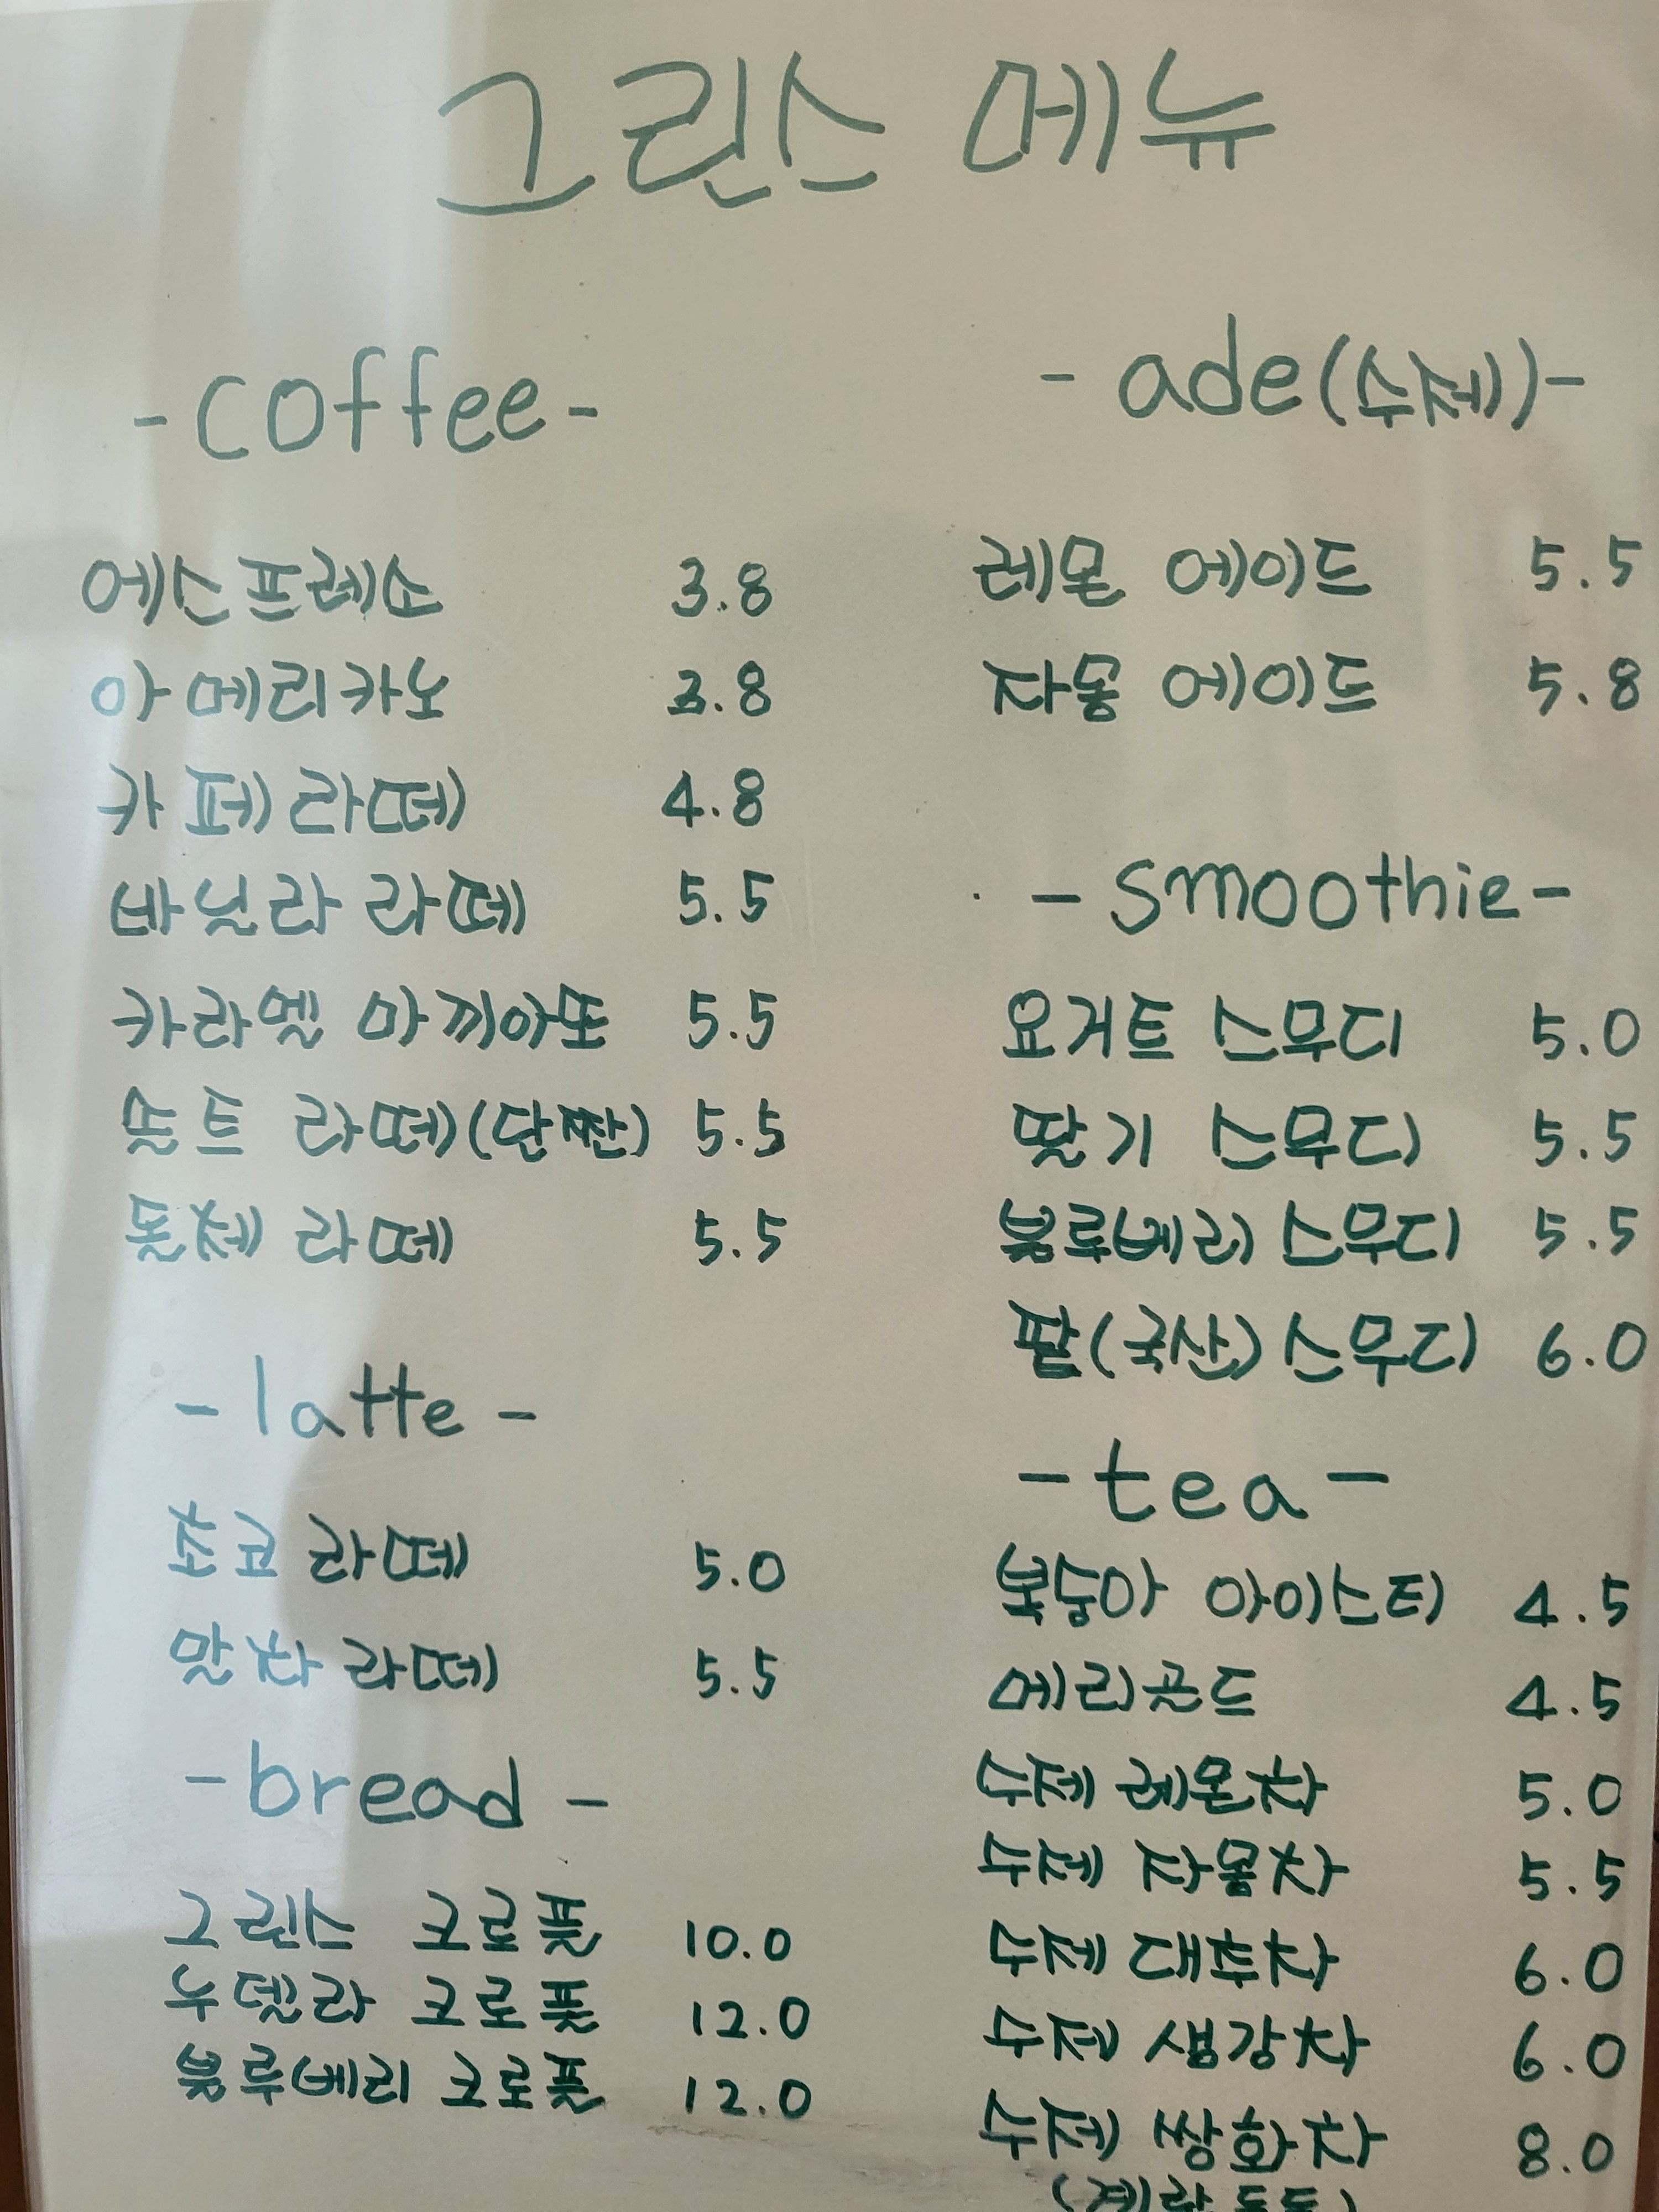 그린스 메뉴
-coffee-
에스프레소 3.8
아메리카노 3.8
카페라떼 4.8
바닐라 라떼 5.5
카라멜 마끼아또 5.5
솔트 라떼(단짠) 5.5
돌체 라떼 5.5
-latte-
쵸코 라떼 5.0
말차 라떼 5.5
-bread-
그린스 크로플 10.0
누텔라 크로플 12.0
블루베리 크로플 12.0
-ade(수제)-
레몬 에이드 5.5
자몽 에이드 5.8
-smoothie-
요거트 스무디 5.0
딸기 스무디 5.5
블루베리 스무디 5.5
팥(국산) 스무디 6.0
-tea-
복숭아 아이스티 4.5
메리골드 4.5
수제 레몬차 5.0
수제 자몽차 5.5
수제 대추차 6.0
수제 생강차 6.0
수제 쌍화차 8.0
(계란 동동)